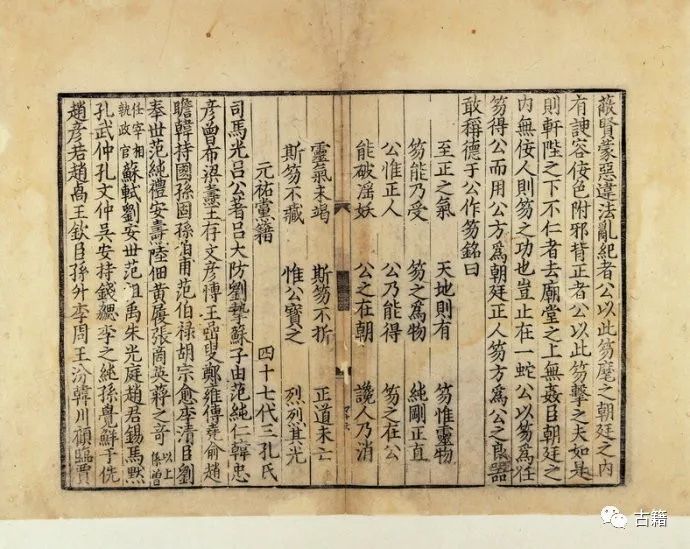 蔽賢蒙惡違法亂紀者公以此笏麾之朝廷之内
有諛容佞色附邪背正者公以此笏擊之夫如是
則軒陛之下不仁者去廟堂之上無姦臣朝廷之
内無佞人則笏之功也豈止在一蛇公以笏為任
笏得公而用公方為朝廷正人笏方為公之良器
敢稱德于公作笏銘曰
至正之氣 天地則有 笏惟靈物
笏能乃受 笏之為物 純剛正直
公惟正人 公乃能得 笏之在公
能破滛妖 公之在朝 讒人乃消
靈氣未竭 斯笏不折 正道未亡
斯笏不藏 惟公寶之 烈烈其光
元祐黨籍 四十七代三孔氏
司馬光呂公著呂大防劉摯蘇子由范純仁韓忠
彦曾布梁燾王存文彦博王喦叟鄭雍傅堯俞趙
瞻韓持國孫固孫伯甫范伯禄胡宗愈李清臣劉
奉世范純禮安燾陸佃黄履張商英蔣之奇以上係曾
任宰相執政官蘇軾劉安世范祖禹朱光庭趙君錫馬黙
孔武仲孔文仲吴安持錢勰李之純孫覺鮮于侁
趙彦若趙卨王欽臣孫升李周王汾韓川顧臨賈
古籍